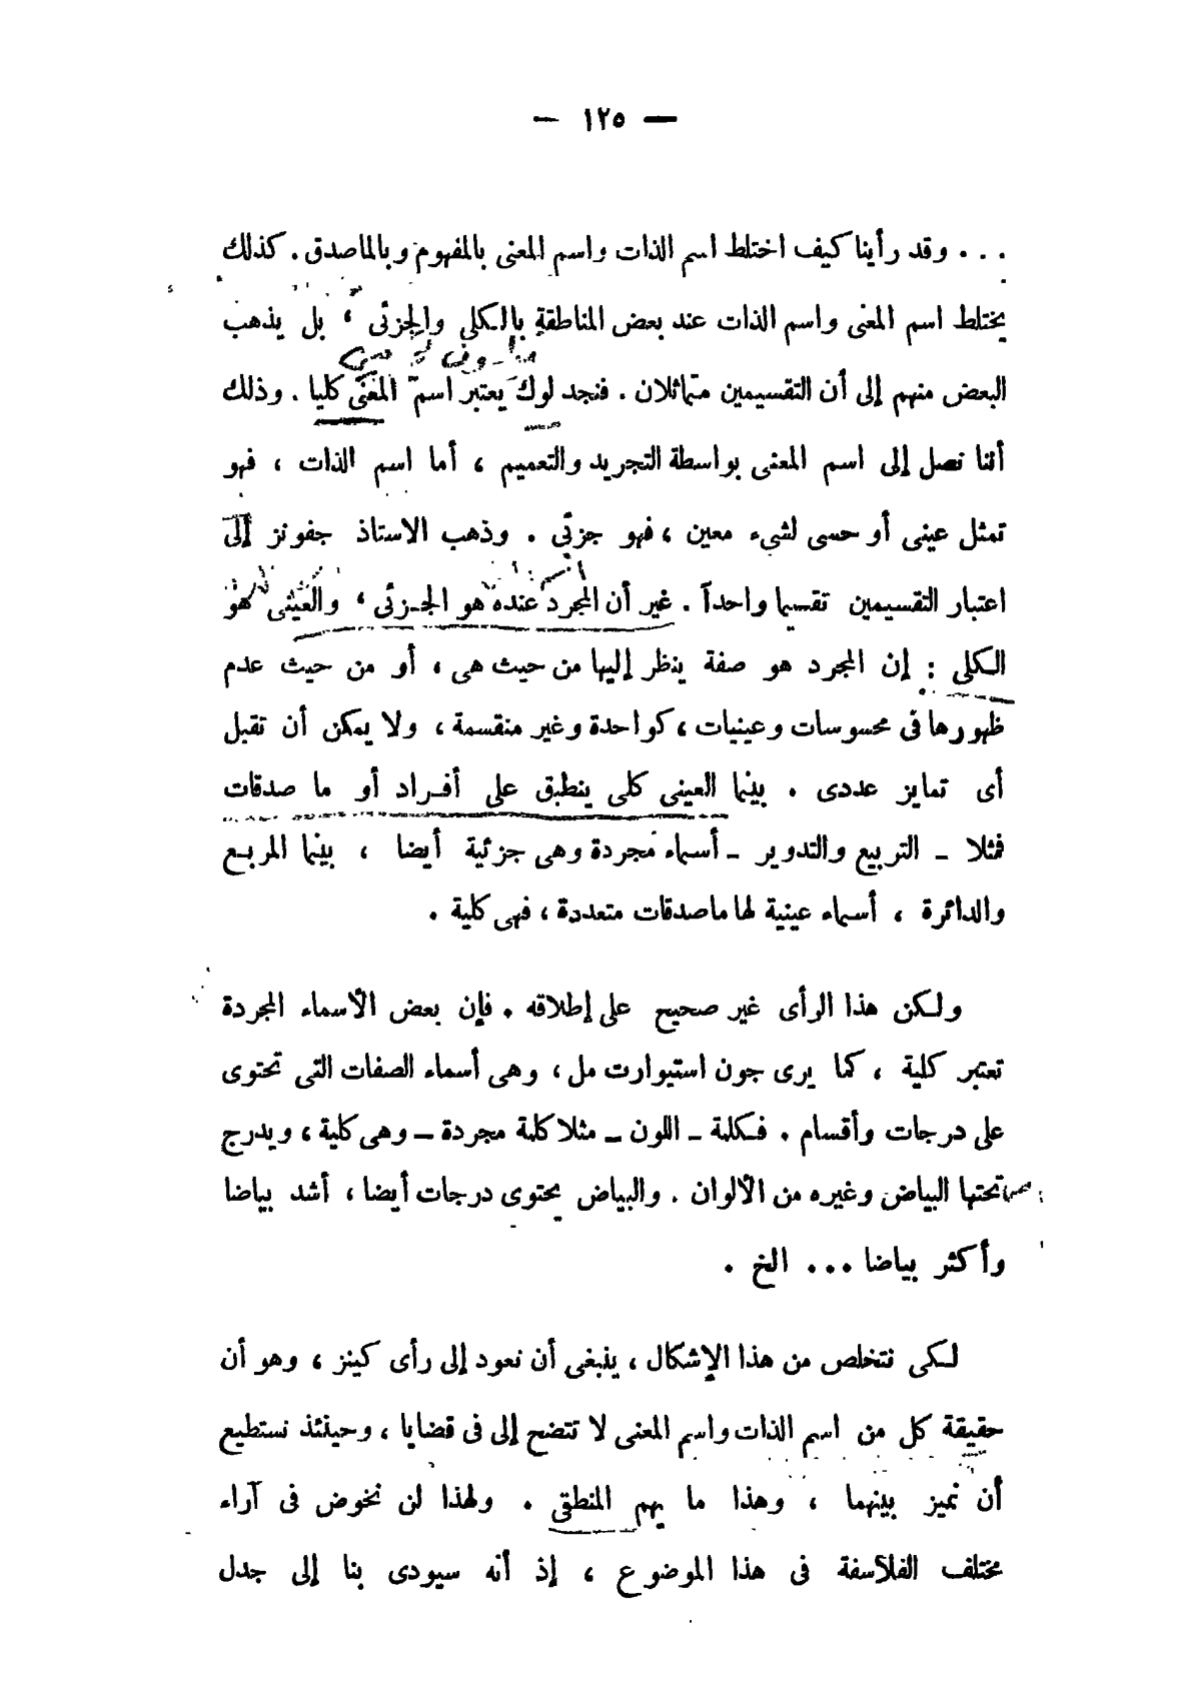 — ١٢٥ —
... وقد رأينا كيف اختلط اسم الذات واسم المعنى بالمفهوم وبالماصدق . كذلك
يختلط اسم المعنى واسم الذات عند بعض المناطقة بالكلى والجزئى ، بل يذهب
البعض منهم إلى أن التقسيمين متماثلان . فنجد لوك يعتبر اسم المعنى كليا . وذلك
أننا نصل إلى اسم المعنى بواسطة التجريد والتعميم ، أما اسم الذات ، فهو
تمثل عينى أو حسى لشىء معين ، فهو جزئى . وذهب الاستاذ جفونز إلى
اعتبار التقسيمين تقسيما واحداً . غير أن المجرد عنده هو الجزئى ، والعينى هو
الكلى : إن المجرد هو صفة ينظر إليها من حيث هى ، أو من حيث عدم
ظهورها فى محسوسات وعينيات ، كواحدة وغير منقسمة ، ولا يمكن أن تقبل
أى تمايز عددى . بينما العينى كلى ينطبق على أفراد أو ما صدقات
فمثلا - التربيع والتدوير - أسماء مجردة وهى جزئية أيضا ، بينما المربع
والدائرة ، أسماء عينية لها ماصدقات متعددة ، فهى كلية .
ولكن هذا الرأى غير صحيح على إطلاقه . فإن بعض الأسماء المجردة
تعتبر كلية ، كما يرى جون استيوارت مل ، وهى أسماء الصفات التى تحتوى
على درجات وأقسام . فكلمة - اللون - مثلا كلمة مجردة - وهى كلية ، ويدرج
تحتها البياض وغيره من الألوان . والبياض يحتوى درجات أيضا ، أشد بياضا
وأكثر بياضا ... الخ .
لكى نتخلص من هذا الإشكال ، ينبغى أن نعود إلى رأى كينز ، وهو أن
حقيقة كل من اسم الذات واسم المعنى لا تتضح إلى فى قضايا ، وحينئذ نستطيع
أن نميز بينهما ، وهذا ما يهم المنطقى . ولهذا لن نخوض فى آراء
مختلف الفلاسفة فى هذا الموضوع ، إذ أنه سيودى بنا إلى جدل